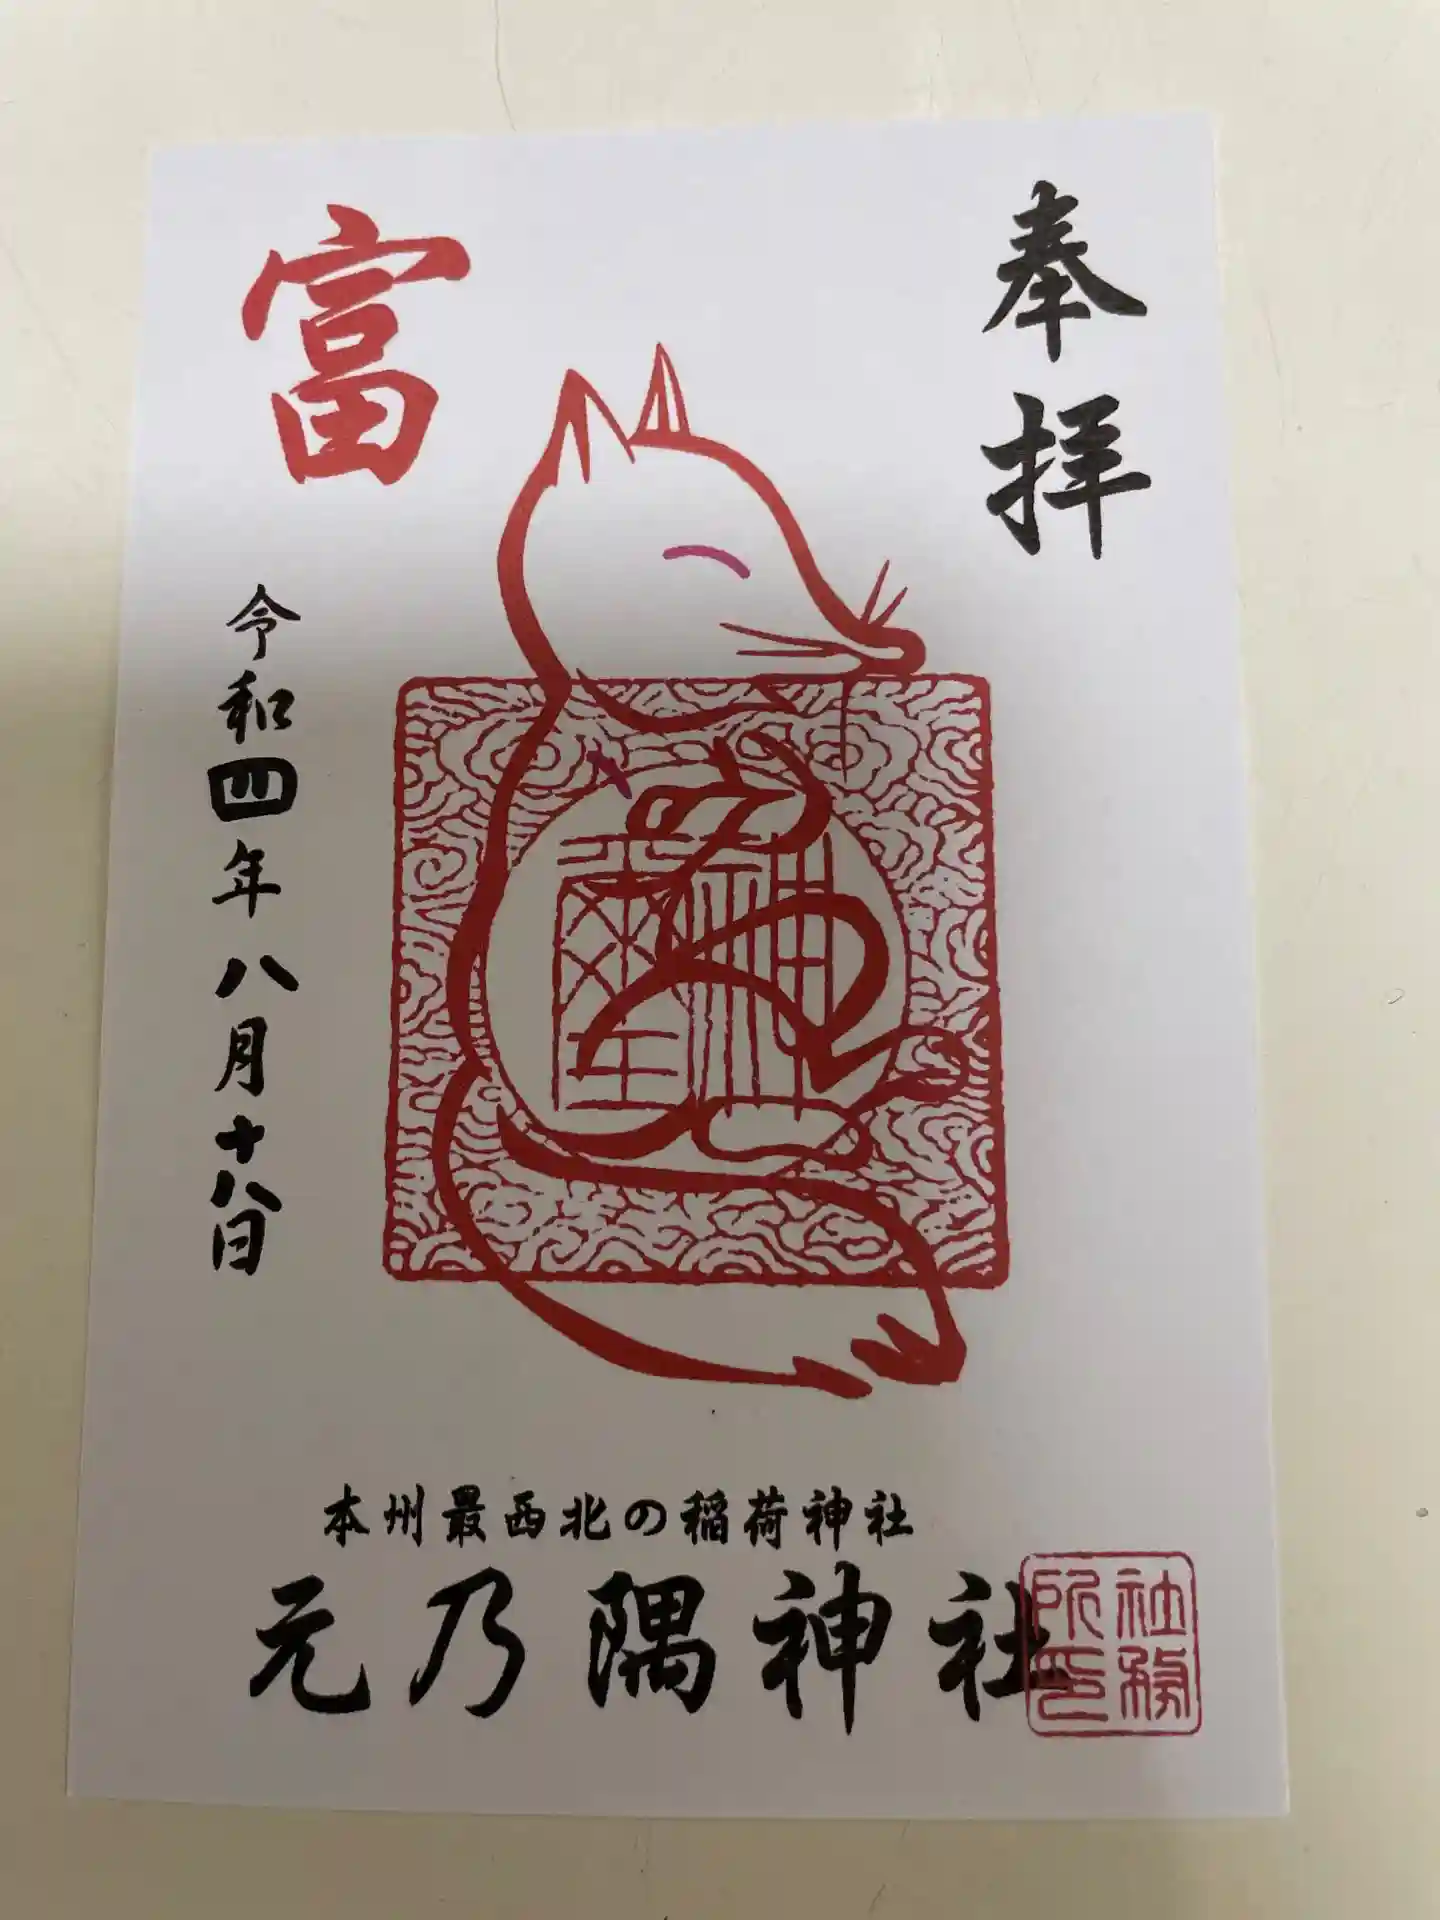 奉拝
富
令和四年八月十八日
本州最西北の稲荷神社
元乃隅神社
社務所印